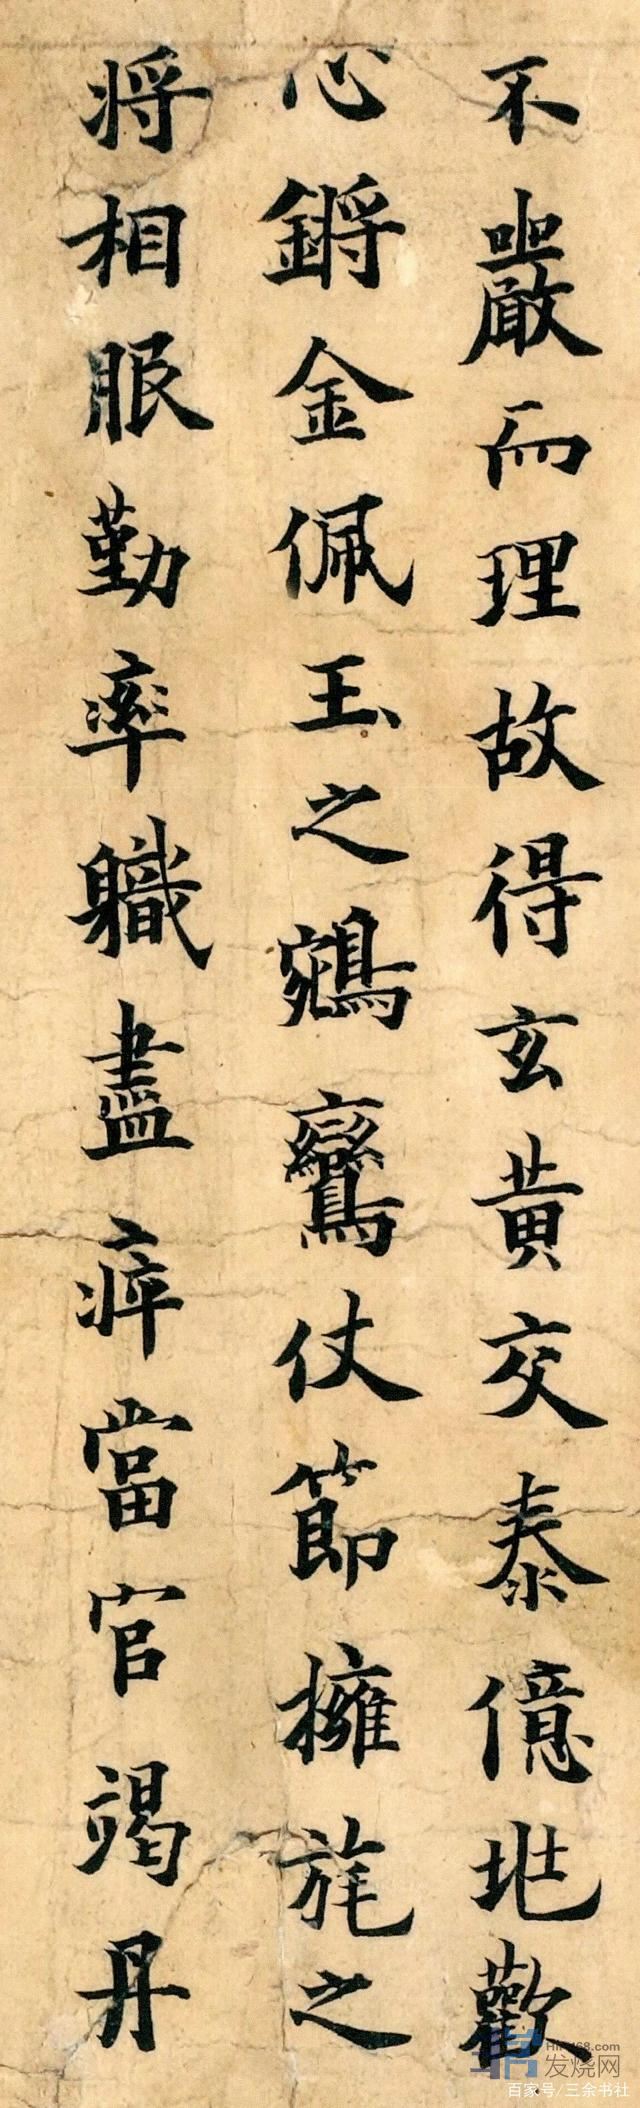 不嚴而理故得玄黄交泰億兆歡
心鏘金佩玉之鵷鸞仗節擁旄之
将相服勤率職盡瘁當官竭丹
发烧网
百家号/三余书社